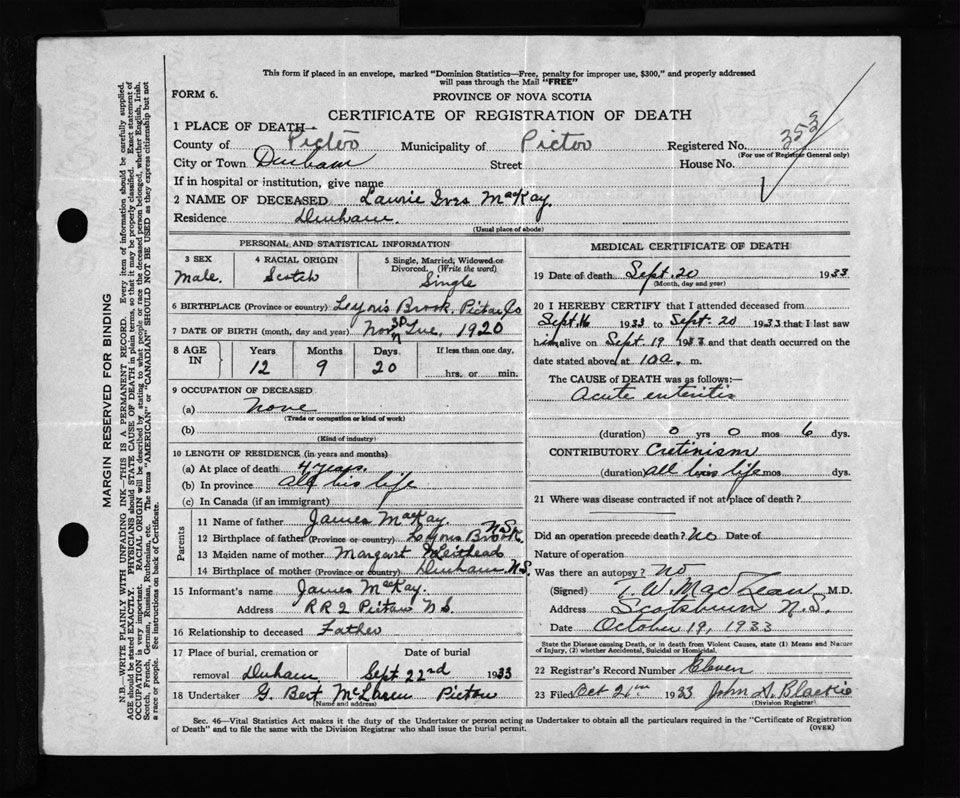 This form if placed in an envelope, marked "Dominion Statistics—Free, penalty for improper use, $300," and properly addressed
will pass through the Mail "FREE"
FORM 6.
PROVINCE OF NOVA SCOTIA
CERTIFICATE OF REGISTRATION OF DEATH
1 PLACE OF DEATH—
County of Pictou Municipality of Pictou Registered No. 353
(For use of Registrar General only)
City or Town Durham Street House No.
If in hospital or institution, give name
2 NAME OF DECEASED Laurie Ives MacKay.
Residence Durham.
(Usual place of abode)
PERSONAL AND STATISTICAL INFORMATION
3 SEX 4 RACIAL ORIGIN 5 Single, Married, Widowed or
Divorced. (Write the word)
Male. Scotch Single
6 BIRTHPLACE (Province or country) Lyons Brook, Pictou Co
7 DATE OF BIRTH (month, day and year) Nov 1920
8 AGE IN Years Months Days If less than one day,
12 9 20 hrs. or min.
9 OCCUPATION OF DECEASED
(a) None
(Trade or occupation or kind of work)
(b)
(Kind of industry)
10 LENGTH OF RESIDENCE (in years and months)
(a) At place of death 4 years.
(b) In province all his life
(c) In Canada (if an immigrant)
Parents
11 Name of father James MacKay.
12 Birthplace of father (Province or country) Lyons Brook. N.S.
13 Maiden name of mother Margart Meikhead
14 Birthplace of mother (Province or country) Durham N.S.
15 Informant's name James MacKay.
Address R R 2 Pictou N S.
16 Relationship to deceased Father
17 Place of burial, cremation or Date of burial
removal Durham Sept 22nd 1933
18 Undertaker G. Bert Pictou
(Name and address)
MEDICAL CERTIFICATE OF DEATH
19 Date of death Sept. 20 1933
(Month, day and year)
20 I HEREBY CERTIFY that I attended deceased from
Sept. 16 1933 to Sept. 20 1933 that I last saw
him alive on Sept 19 1933 and that death occurred on the
date stated above at 10 a. m.
The CAUSE of DEATH was as follows:—
Acute enteritis
(duration) 0 yrs 0 mos 6 dys.
CONTRIBUTORY Cretinism
(duration) all his life mos dys.
21 Where was disease contracted if not at place of death?
Did an operation precede death? No Date of
Nature of operation
Was there an autopsy? No
(Signed) T. W. MacLean M.D.
Address Scotsburn N.S.
Date October 19, 1933
State the Disease causing Death, or in death from Violent Causes, state (1) Means and Nature
of Injury, (2) whether Accidental, Suicidal or Homicidal.
22 Registrar's Record Number Eleven
23 Filed Oct 21st 1933 John D. Blackie
(Division Registrar)
Sec. 46—Vital Statistics Act makes it the duty of the Undertaker or person acting as Undertaker to obtain all the particulars required in the "Certificate of Registration
of Death" and to file the same with the Division Registrar who shall issue the burial permit.
(OVER)
MARGIN RESERVED FOR BINDING
N.B.—WRITE PLAINLY WITH UNFADING INK—THIS IS A PERMANENT RECORD. Every item of information should be carefully supplied.
AGE should be stated EXACTLY. PHYSICIANS should STATE CAUSE OF DEATH in plain terms, so that it may be properly classified. Exact statement of
OCCUPATION is very important. RACIAL ORIGIN will be described by stating to what people or race the deceased person belonged, whether English, Irish,
Scotch, French, German, Russian, Ruthenian, etc. The terms "AMERICAN" or "CANADIAN" SHOULD NOT BE USED as they express citizenship but not
a race or people. See instructions on back of Certificate.